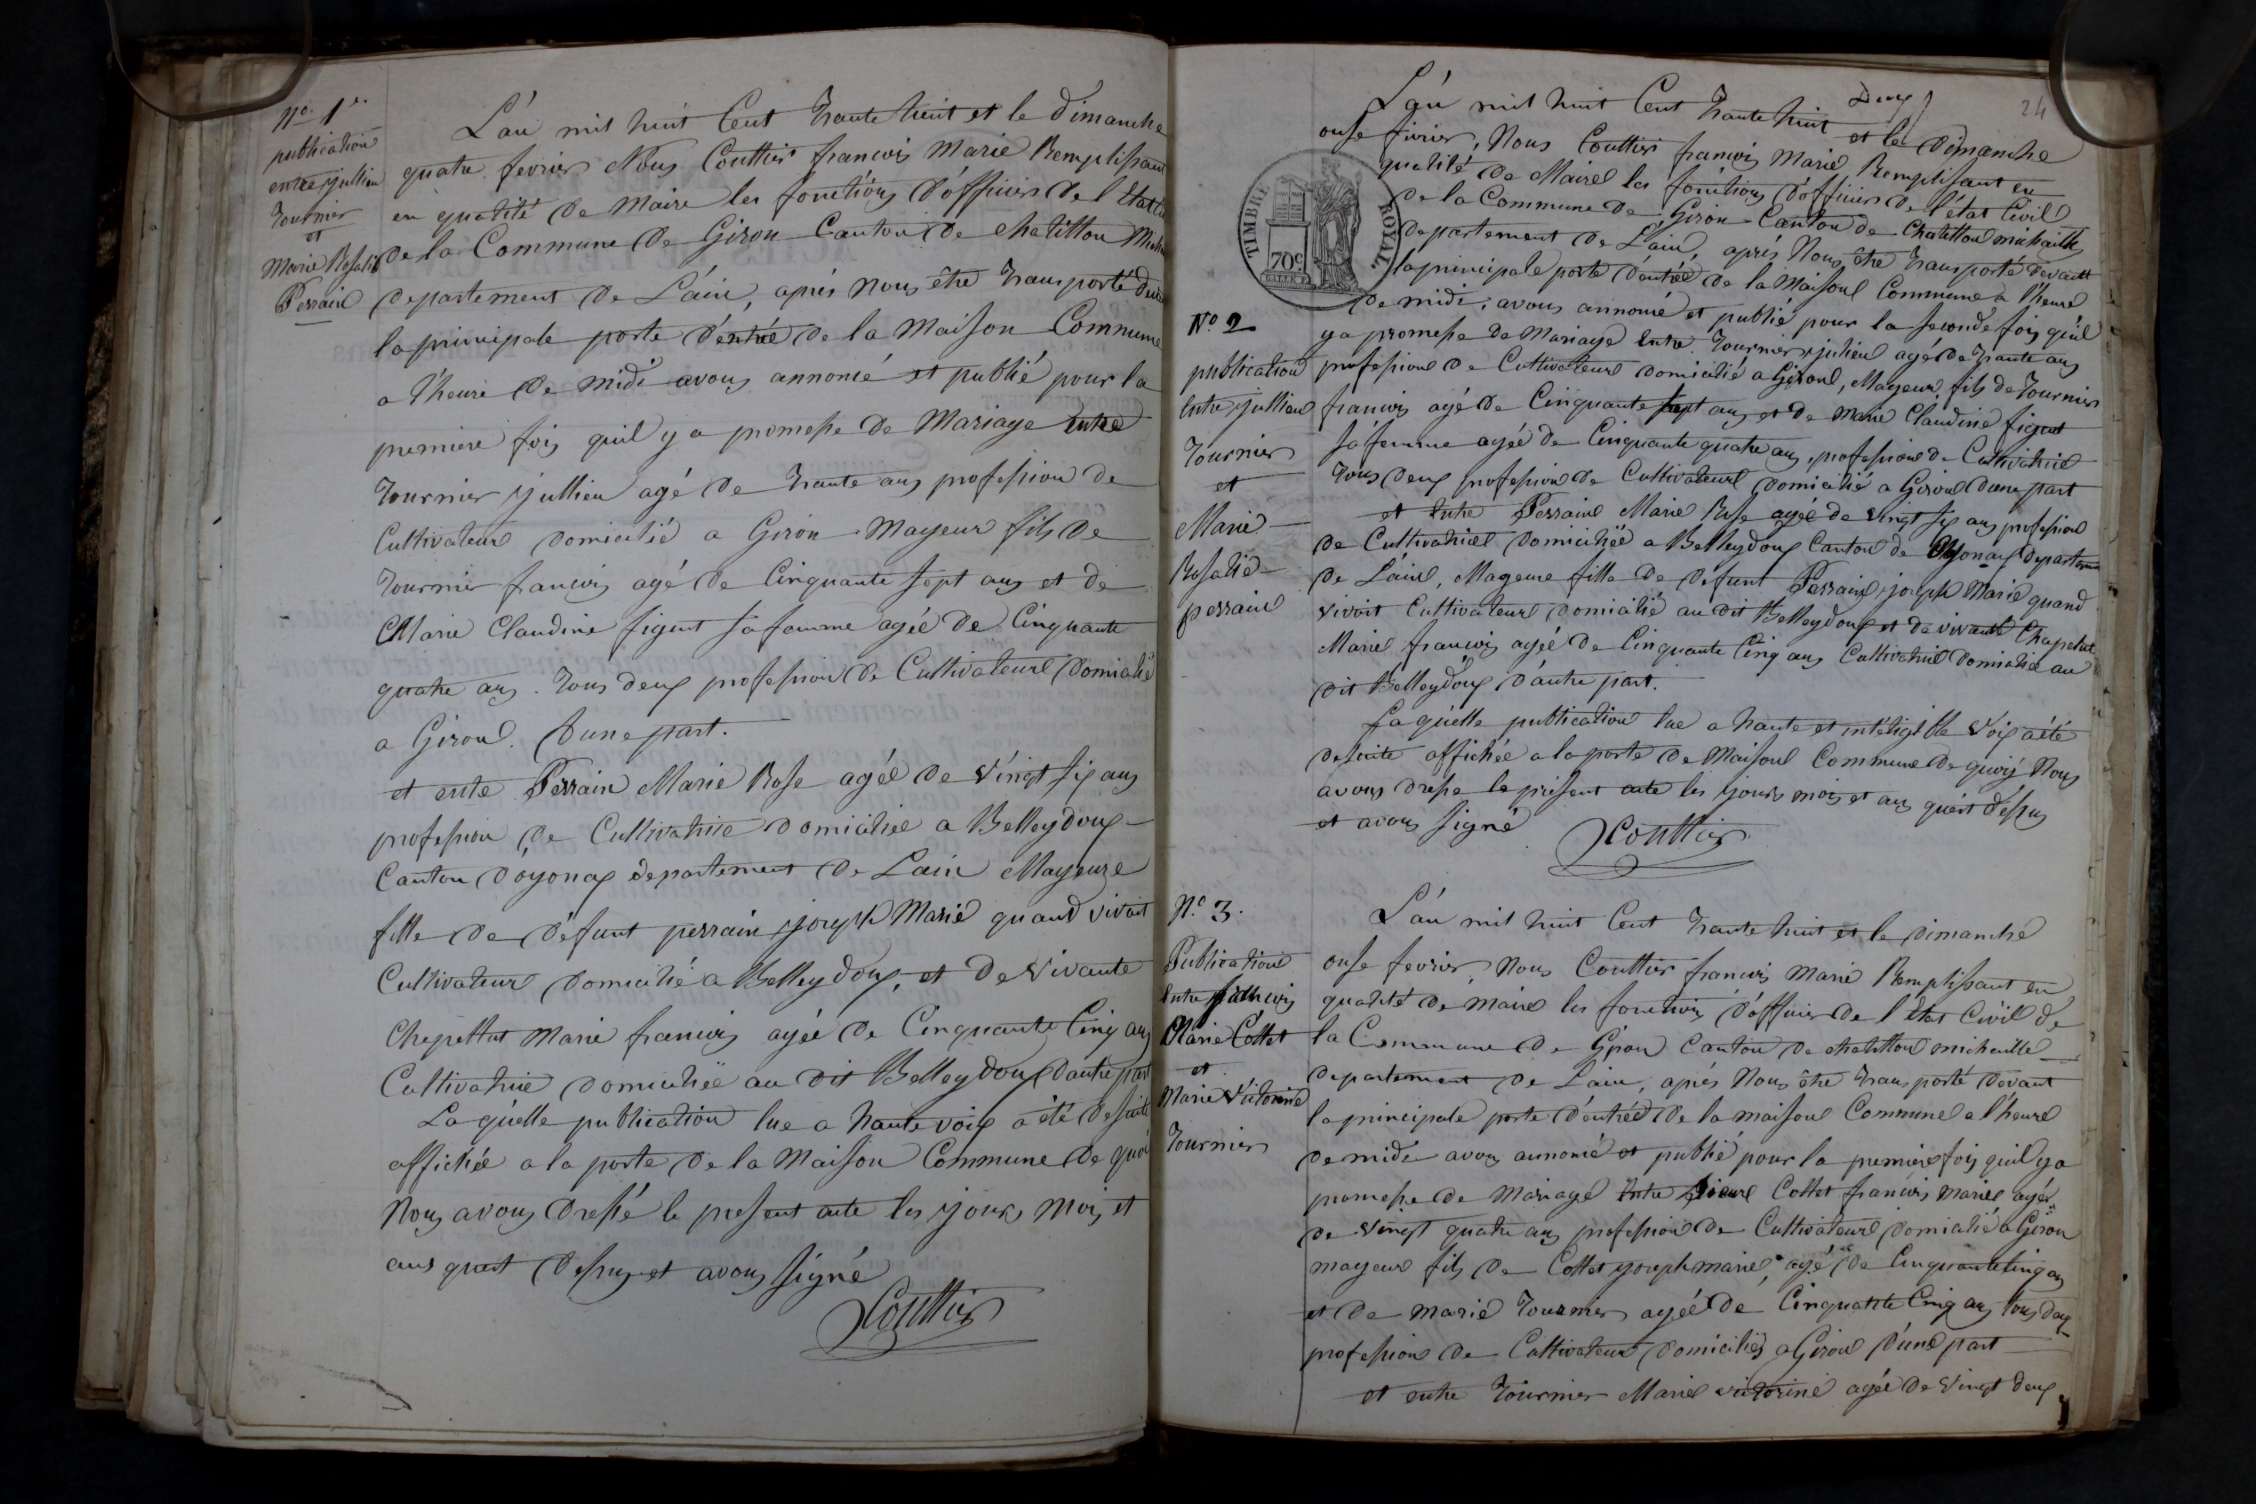 No 1er
publication
entre jullien
Tournier
et
Marie Rosalie
Perrain
L'an mil huit Cent trante huit et le dimanche
quatre fevrier Nous Couttier francois Marie Remplissant
en qualité de Maire les fonctions d'officier de l'Etat
de la Commune de Giron Canton de chatillon
departement de L'ain, après nous être transporté
la principale porte d'entrée de la Maison Commune
a l'heure de midi avons annoncé et publié pour la
premiere fois quil y a promesse de Mariage entre
Tournier jullien agé de trante ans profession de
Cultivateur domicilié a Giron Mayeur fils de
Tournier francois agé de Cinquante sept ans et de
Marie Claudine figent sa femme agée de Cinquante
quatre ans. tous deux profession de Cultivateur domicilié
a Giron. d'une part.
et entre Perrain Marie Rose agée de vingt six ans
profession de Cultivatrice domiciliée a Belleydoux
Canton d'oyonax departement de L'ain Mayeure
fille de défunt perrain joseph Marie quand vivait
Cultivateur domicilié a Belleydoux, et de vivante
Chapellut Marie francois agée de Cinquante Cinq ans
Cultivatrice domiciliée au dit Belleydoux d'autre part
La quelle publication lue a haute voix a été de suite
affichée a la porte de la Maison Commune de quoi
Nous avons dressé le present acte les jours mois et
ans quest dessus et avons signé
Couttier
24
Deux
L'an mil huit Cent trante huit et le dimanche
onse fivrier, Nous Couttier francois Marie Remplissant en
qualité de Maire les fonctions d'officier de l'état Civil
de la Commune de Giron Canton de Chatillon michaille
departement de L'ain, après Nous être transporté devant
la principale porte d'entrée de la Maison Commune a l'heure
de midi, avons annoncé et publié pour la seconde fois qu'il
y a promesse de Mariage entre Tournier julien agé de trante ans
profession de Cultivateur domicilié a Giron, Mayeur, fils de Tournier
francois agé de Cinquante sept ans et de Marie Claudine figent
sa femme agée de Cinquante quatre ans, profession de Cultivatrice
tous deux profession de Cultivateur domicilié a Giron d'une part
et entre Perrain Marie Rose agée de vingt six ans profession
de Cultivatrice domiciliée a Belleydoux Canton de Oyonax departement
de L'ain, Mageure fille de defunt Perrain joseph Marie quand
vivoit Cultivateur domicilié au dit Belleydoux et de vivante Chapelut
Marie francois agée de Cinquante Cinq ans Cultivatrice domiciliée au
dit Belleydoux d'autre part.
La quelle publication lue a haute et intéligible voix a été
de suite affichée a la porte de Maison Commune de quoy Nous
avons dressé le present acte les jours mois et ans quest dessus
et avons signé
Couttier
TIMBRE ROYAL
70c
No 2
publication
Entre jullien
Tournier
et
Marie
Rosalie
perrain
No 3.
Publication
Entre francois
Marie Cottet
et
Marie Victorine
Tournier
L'an mil huit Cent trante huit et le dimanche
onse fevrier, Nous Couttier francois Marie Remplissant en
qualité de maire les fonctions d'officier de l'état Civil de
la Commune de Giron Canton de chatillon michaille
departement de L'ain, après Nous être transporté devant
la principale porte d'entrée de la maison Commune a l'heure
de midi avons annoncé et publié pour la premiere fois quil y a
promesse de mariage Entre sieur Cottet francois Marie agée
de vingt quatre ans profession de Cultivateur domicilié a Giron
mayeur fils de Cottet joseph marie, agé de Cinquante cinq ans
et de Marie Tournier agée de Cinquante Cinq ans tous deux
profession de Cultivateur domiciliés a Giron d'une part
et entre Tournier Marie victorine agée de vingt deux